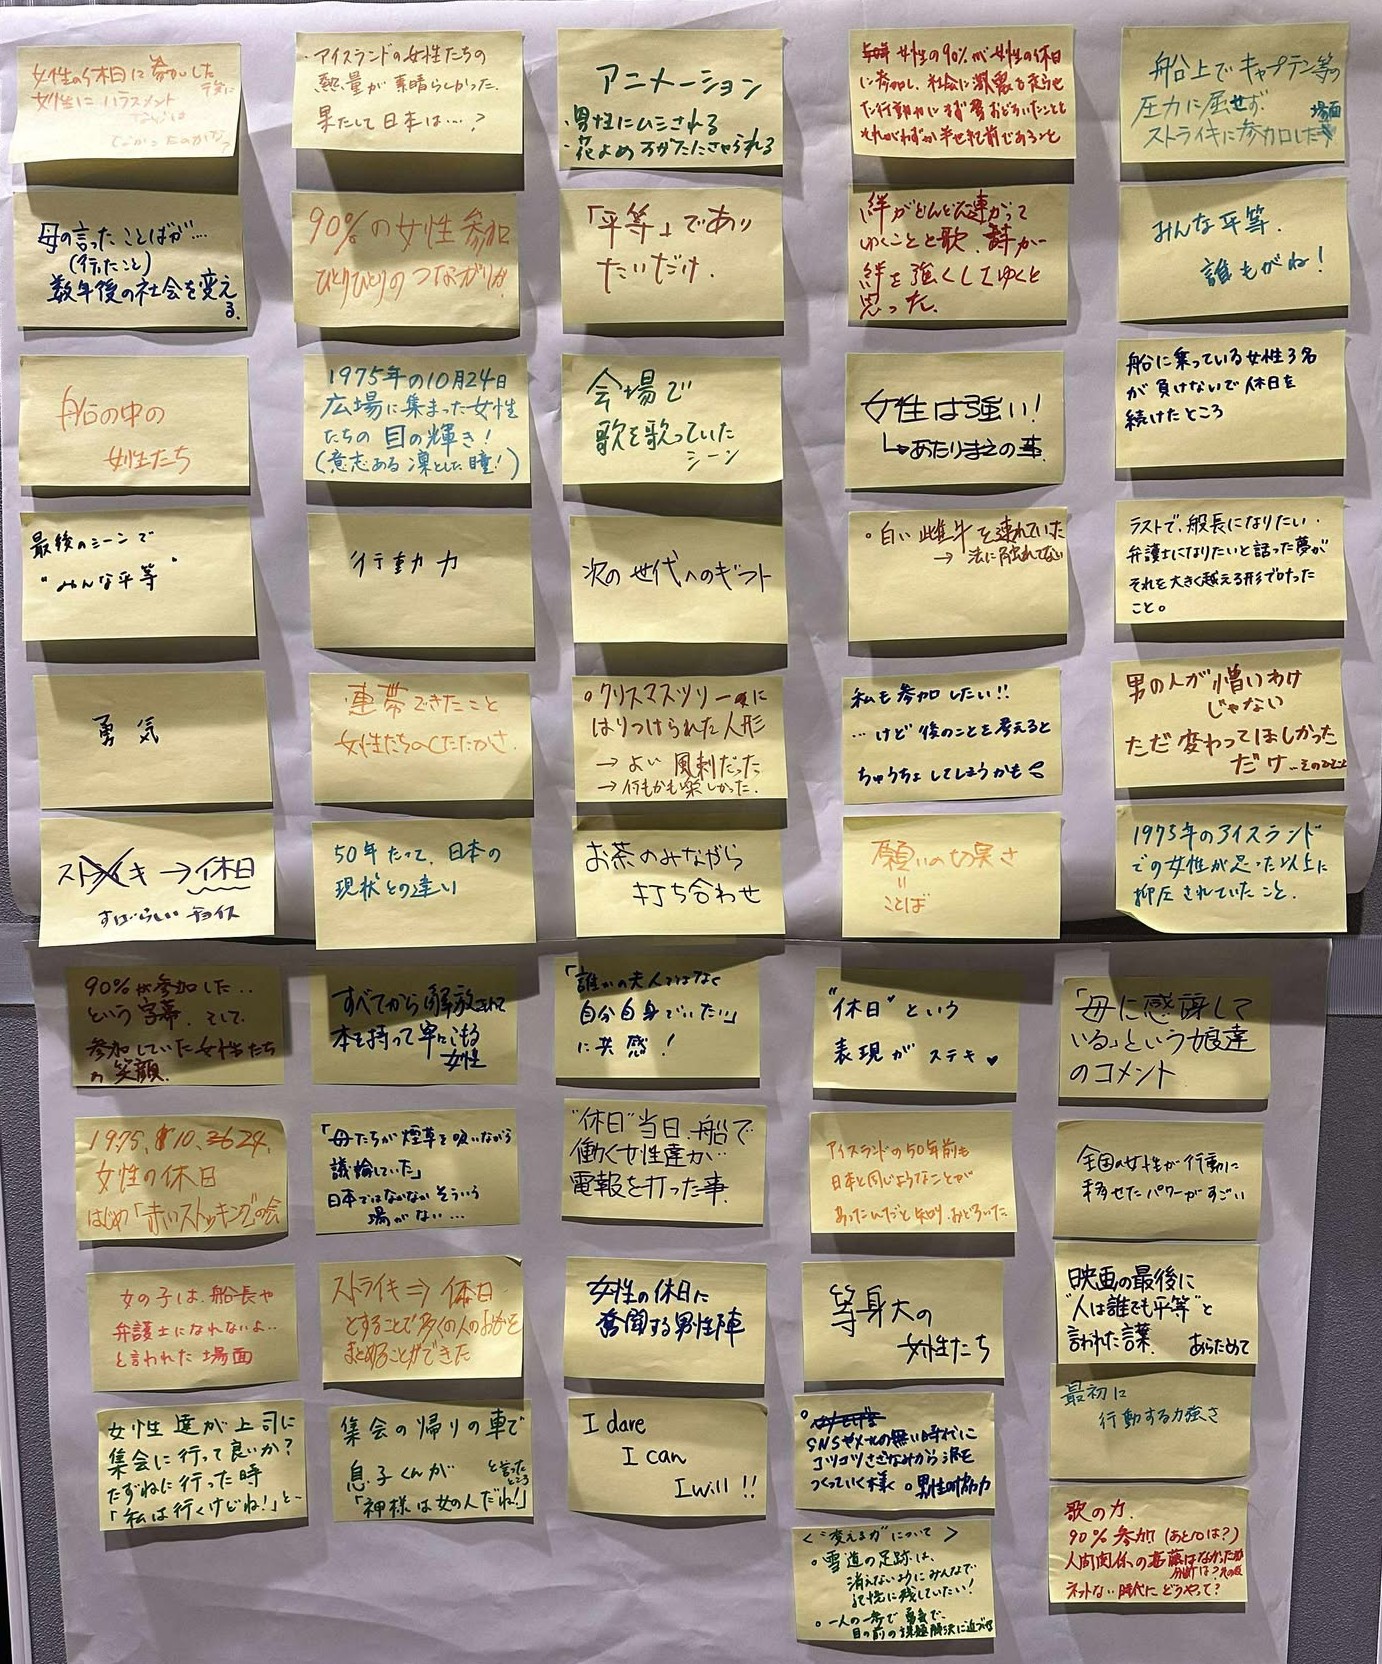 女性の休日に参加した
女性にハラスメント
アイスランドの女性たちの
熱量が素晴らしかった.
果たして日本は…．?
アニメーション
・男性にムシされる
・花よめ
女性の90%が女性の休日
に参加し、社会に
それがわずか半世紀前であること
船上でキャプテン等の
圧力に屈せず.
ストライキに参加した場面
母の言ったことばが…
(行ったこと)
数年後の社会を変え
る.
90%の女性参加
ひとりひとりのつながりが.
「平等」であり
たいだけ.
絆がどんどん連がって
ゆくことと歌.詩が
絆を強くしてゆくと
思った.
みんな平等.
誰もがね!
船の中の
女性たち
1975年の10月24日
広場に集まった女性
たちの目の輝き!
(意志ある凜とした瞳!)
会場で
歌を歌っていた
シーン
女性は強い!
↳あたりまえの事.
船に乗っている女性3名
が負けないで休日を
続けたところ
最後のシーンで
"みんな平等"
行動力
次の世代へのギフト
。白い雌牛を連れていた
→
ラストで、船長になりたい・
弁護士になりたいと語った夢が
それを大きく越える形で叶った
こと。
勇気
連帯できたこと
女性たちのしたたかさ.
。クリスマスツリーに
はりつけられた人形
→よい風刺だった
→何もかも楽しかった.
私も参加したい!!
…けど後のことを考えると
ちゅうちょしてしまうかも
男の人が憎いわけ
じゃない
ただ変わってほしかった
だけ
ストライキ→休日
すばらしいチョイス
50年たって、日本の
現状との違い
お茶のみながら
打ち合わせ
願いの切実さ
=
ことば
1975年のアイスランド
での女性が思った以上に
抑圧されていたこと.
90%が参加した..
という字幕.そして
参加していた女性たち
の笑顔.
すべてから解放されて
本を持って
女性
「誰かの夫人ではなく
自分自身でいたい」
に共感!
"休日"という
表現がステキ♥
「母に感謝して
いる」という娘達
のコメント
1975、10、24、
女性の休日
はじめ「赤いストッキング」の会
「母たちが煙草を吸いながら
議論していた」
日本ではなかなかそういう
場がない…
"休日"当日、船で
働く女性達が…
電報を打った事.
アイスランドの50年前も
日本と同じようなことが
あったんだと知り、おどろいた
全国の女性が行動に
移せたパワーがすごい
女の子は、船長や
弁護士になれないよ..
と言われた場面
ストライキ⇒休日
とすることで多くの人の
まとめることができた
女性の休日に
奮闘する男性陣
等身大の
女性たち
映画の最後に
"人は誰でも平等"と
言われた言葉. あらためて
女性達が上司に
集会に行って良いか?
たずねに行った時
「私は行くけどね!」と-
集会の帰りの車で
息子くんが
「神様は女の人だね!」
と言った
ところ
I dare
I can
I will!!
SNSやメールの無い時代に
コツコツさざなみから波を
つくっていく様。男性の協力
最初に
行動する力強さ
<"変える力"について>
。雪道の足跡は、
消えないようにみんなで
記憶に残していたい!
。一人の一歩で勇気で、
目の前の課題解決に近づける
歌の力.
90%参加(あと10は?)
人間関係の葛藤はなかったか
ネットない時代にどうやって?